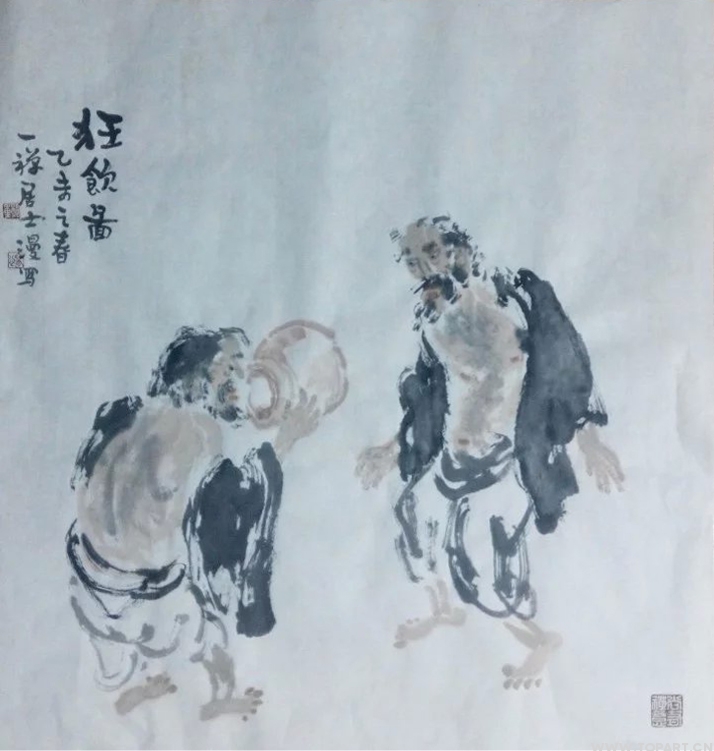 狂飲啚
乙未之春
一禅居士漫写
WWW.TOPART.CN